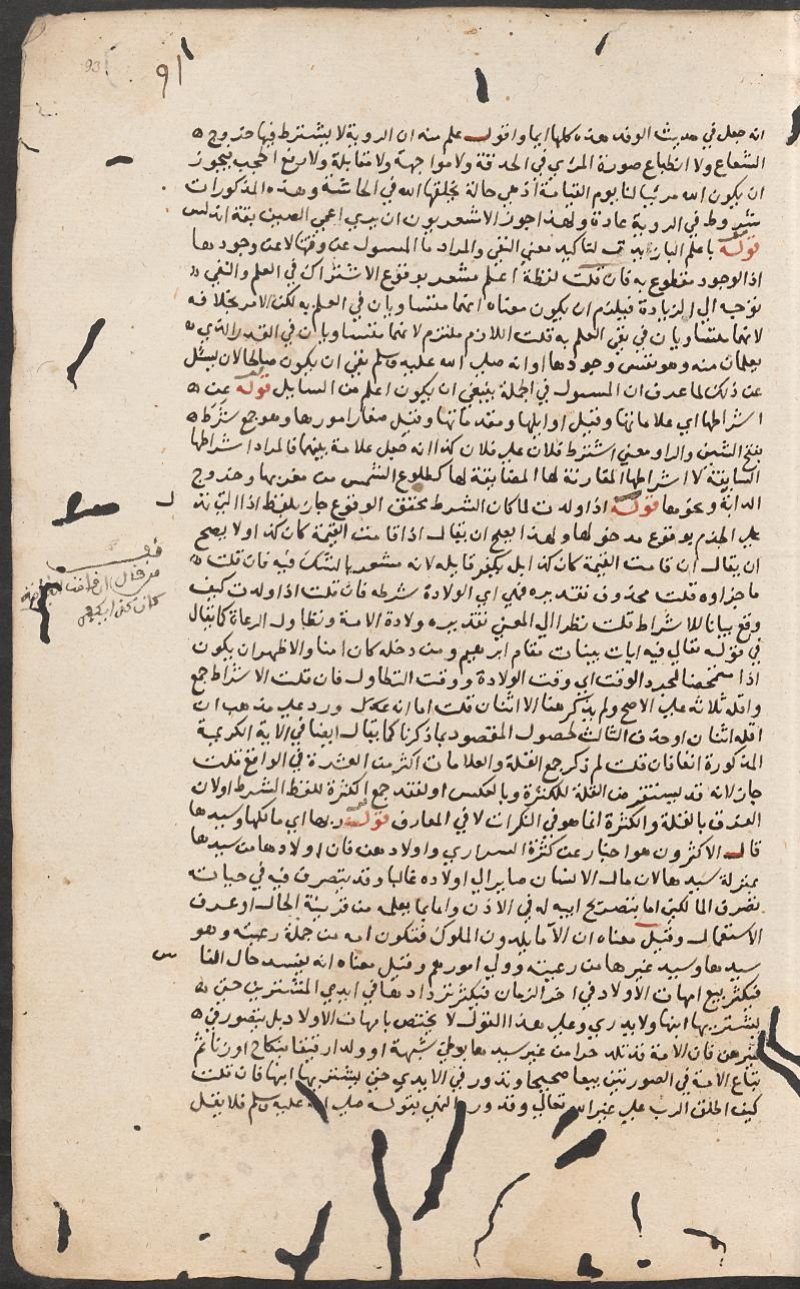 91
93
انه جعل في حديث الوفد هذه كلها ايمانا واقول علم منه ان الروية لا يشترط فيها خروج
الشعاع ولا انطباع صورة المرئي في الحدقة ولا مواجهة ولا مقابلة ولا رفع الحجب فيجوز
ان يكون الله مرئيا لنا يوم القيامة اذ هي حالة يخلقها الله في الحاسة وهذه المذكورات
شروط في الروية عادة ولهذا جوز الاشعريون ان يري اعمي الصين بقة اندلس
قوله باعلم البا زيدت لتاكيد معني النفي والمراد ما المسول عن وقتها لا عن وجودها
اذ الوجود مقطوع به فان قلت لفظة اعلم مشعر بوقوع الاشتراك في العلم والنفي
توجه الي الزيادة فيلزم ان يكون معناه انهما متساويان في العلم به لكن الامر بخلافه
لانهما متساويان في نفي العلم به قلت اللازم ملتزم لانهما متساويان في القدر الذي
يعلمان منه وهو نفس وجودها او انه صلى الله عليه وسلم نفي ان يكون صالحا لان يسئل
عن ذلك لما عرف ان المسول في الجملة ينبغي ان يكون اعلم من السايل قوله عن
اشراطها اي علاماتها وقيل اوايلها ومقدماتها وقيل صغار امورها وهو جمع شرط
بفتح الشين والراو معني اشترط فلان علي فلان كذا انه جعل علامة بينهما فالمراد اشراطها
السابقة لا اشراطها المقارنة لها المضايقة لها كطلوع الشمس من مغربها وخروج
الدابة ونحوها قوله اذا ولدت لما كان الشرط محقق الوقوع جاز بلفظ اذا التي تدل
علي الجزم بوقوع مدخولها ولهذا يصح ان يقال اذا قامت القيمة كان كذا ولا يصح
ان يقال ان قامت القيمة كان كذا بل يكفر قايله لانه مشعر بالشك فيه فان قلت
ما جزاوه قلت محذوف تقديره فهي اي الولادة شرطه فان قلت اذا ولدت كيف
وقع بيانا للاشراط قلت نظرا الي المعني تقديره ولادة الامة وتطاول الرعاة كما يقال
في قوله تعالي فيه ايات بينات مقام ابرهيم ومن دخله كان امنا والاظهر ان يكون
اذا متمحضا لمجرد الوقت اي وقت الولادة ووقت التطاول فان قلت الاشراط جمع
واقله ثلاثة علي الاصح ولم يذكر هنا الا اثنان قلت اما انه ورد علي مذهب ان
اقله اثنان او حذف الثالث لحصول المقصود بما ذكرنا كما يقال ايضا في الاية الكريمة
المذكورة انفا فان قلت لم ذكر جمع القلة والعلامات اكثر من العشرة في الواقع قلت
جاز لانه قد يستقرض القلة للكثرة وبالعكس او لفقد جمع الكثرة للفظ الشرط او لان
الفرق بالقلة والكثرة انما هو في النكرات لا في المعارف قوله ربها اي مالكها وسيدها
قال الاكثرون هو اخبار عن كثرة السراري واولادهن فان اولادها من سيدها
بمنزلة سيدها لان مال الانسان صاير الي اولاده غالبا وقد يتصرف فيه في حياته
تصرف المالكين اما بتصريح ابيه له في الاذن واما بما يعلمه من قرينة الحال او عرف
الاستعمال وقيل معناه ان الاما يلدون الملوك فتكون امه من جملة رعيته وهو
سيدها وسيد غيرها من رعيته وولي امورهم وقيل معناه انه يفسد حال الناس
فيكثر بيع امهات الاولاد في اخر الزمان فيكثر تردادها في ايدي المشترين حتي
يشتريها ابنها ولا يدري وعلي هذا القول لا يختص بامهات الاولاد بل يتصور في
غيرهن فان الامة قد تلد حرا من غير سيدها بوطي شبهة او ولدا رقيقا بنكاح او زنا ثم
تباع الامة في الصورتين بيعا صحيحا وتدور في الايدي حتي يشتريها ابنها فان قلت
كيف اطلق الرب علي غير الله تعالي وقد ورد النهي بقوله صلى الله عليه وسلم فلا يقل
قف
من قال ان قامت القيامة
كان كذا يكفر